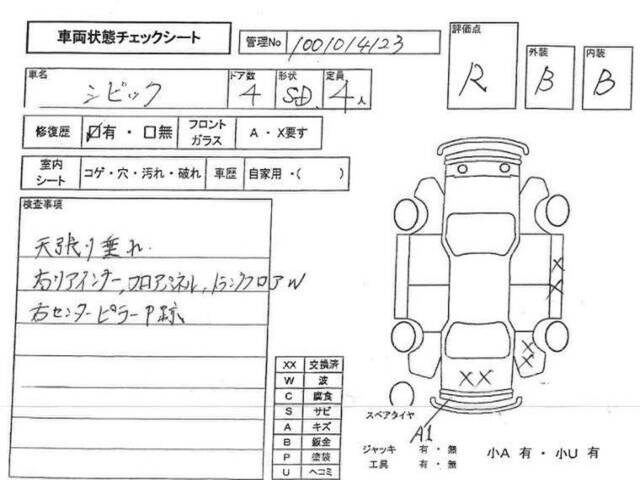 車両状態チェックシート
管理No 1001014123
評価点 R
外装 B
内装 B
車名 シビック
ドア数 4
形状 SD
定員 4人
修復歴 ☑有・☐無
フロントガラス A・X要す
室内シート コゲ・穴・汚れ・破れ
車歴 自家用・( )
検査事項
天張り垂れ
右リアインナー,フロアパネル,トランクフロアW
右センターピラーP跡
XX 交換済
W 波
C 腐食
S サビ
A キズ
B 鈑金
P 塗装
U ヘコミ
X
X
X
X
XX
スペアタイヤ
A1
ジャッキ 有・無
工具 有・無
小A 有・小U 有